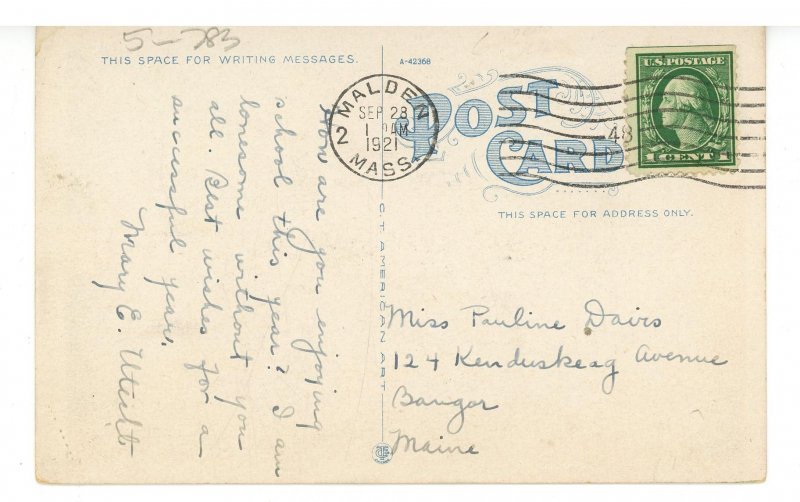 5-783
THIS SPACE FOR WRITING MESSAGES.
A-42368
How are you enjoying
school this year? I am
lonesome without you
all. Best wishes for a
successful year.
Mary E.
C.T. AMERICAN ART
MALDEN
2
SEP 28
AM
1921
MASS.
POST
CARD
48
U.S. POSTAGE
1 CENT 1
THIS SPACE FOR ADDRESS ONLY.
Miss Pauline Davis
124 Kenduskeag Avenue
Bangor
Maine